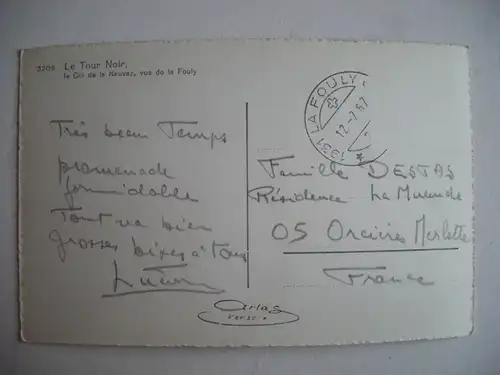 3209 Le Tour Noir,
le Gli de la Neuvaz, vue de la Fouly
Très beau Temps
promenade
formidable
Tout va bien
grosses bises à tous
1931 LA FOULY
12.-7.67
Famille DESTAS
Résidence La
05 Orcières Merlette
France
Arlas
Versoix